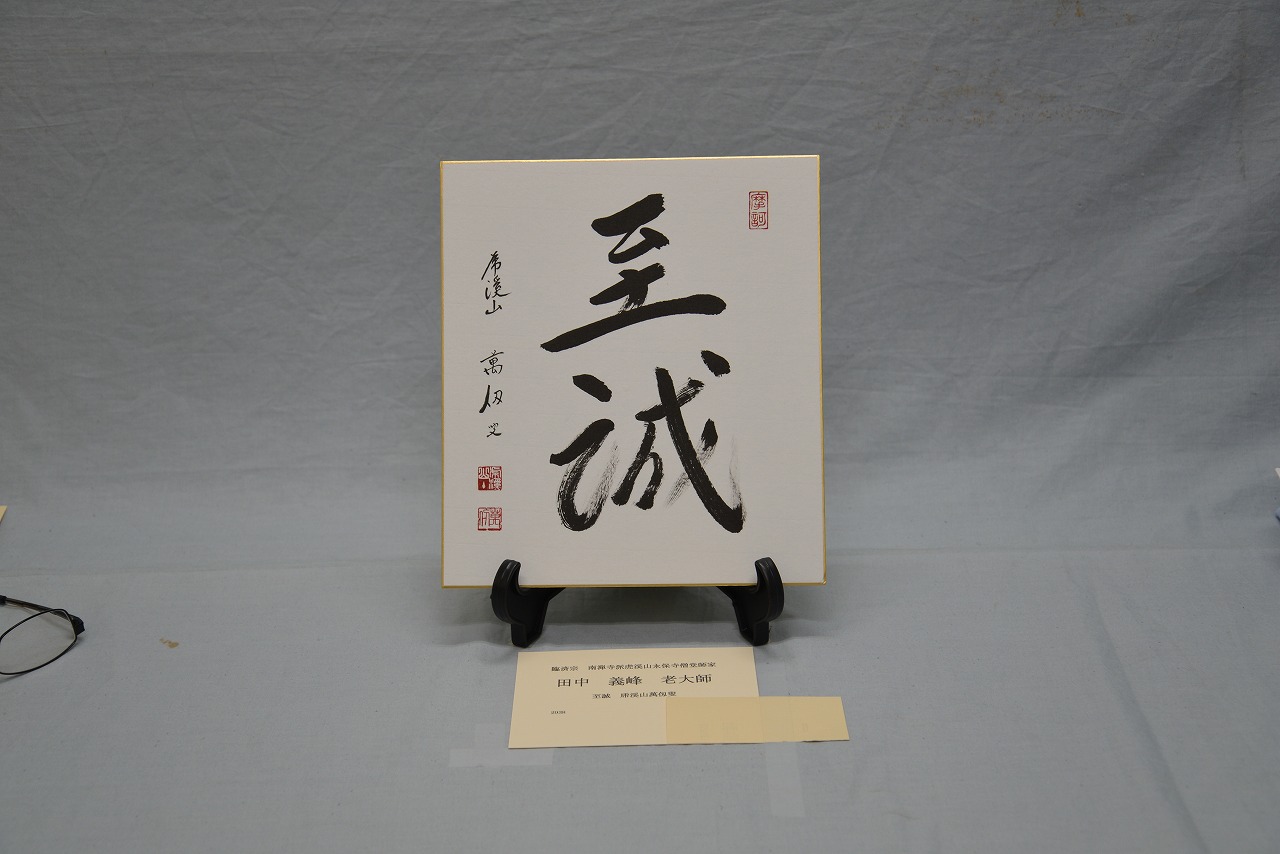 摩訶
至誠
虎溪山 萬仭叟
臨済宗 南禅寺派虎溪山永保寺僧堂師家
田中 義峰 老大師
至誠 虎溪山萬仭叟